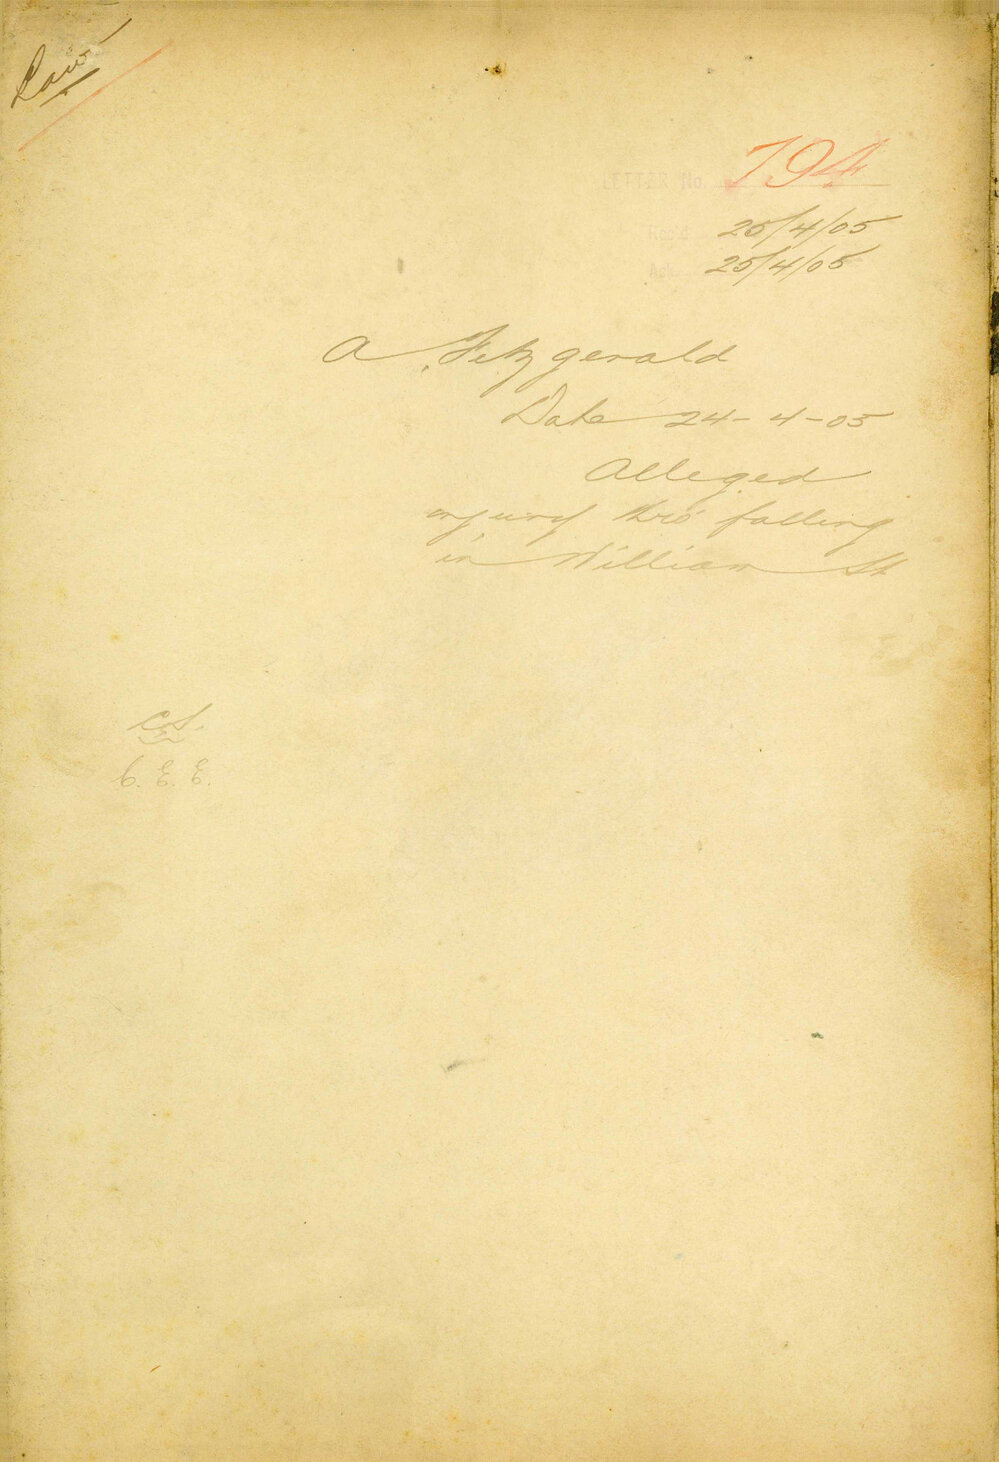 Law
LETTER No. 794
Recd. 25/4/05
Ack. 25/4/05
A Fitzgerald
Date 24-4-05
Alleged
injury thro' falling
in William St
C.S.
C. E. E.